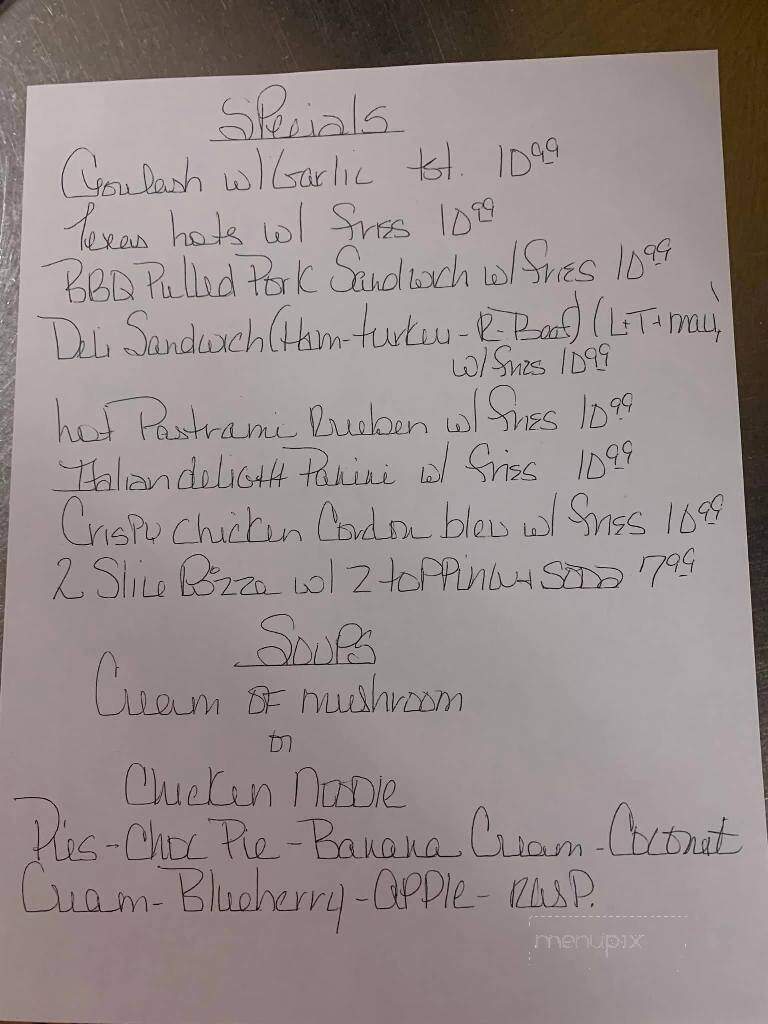 Specials
Goulash w/Garlic tst. 10.99
Texas hots w/ fries 10.99
BBQ Pulled Pork Sandwich w/fries 10.99
Deli Sandwich (Ham-turkey-R-Beef) (L+T+may)
w/fries 10.99
hot Pastrami Rueben w/ fries 10.99
Italian delight Panini w/ fries 10.99
Crispy chicken Cordon bleu w/ fries 10.99
2 Slice Pizza w/ 2 topping + soda 7.99
Soups
Cream OF mushroom
or
Chicken Noodle
Pies - Choc Pie - Banana Cream - Coconut
Cream - Blueberry - APPle - RASP.
menupix